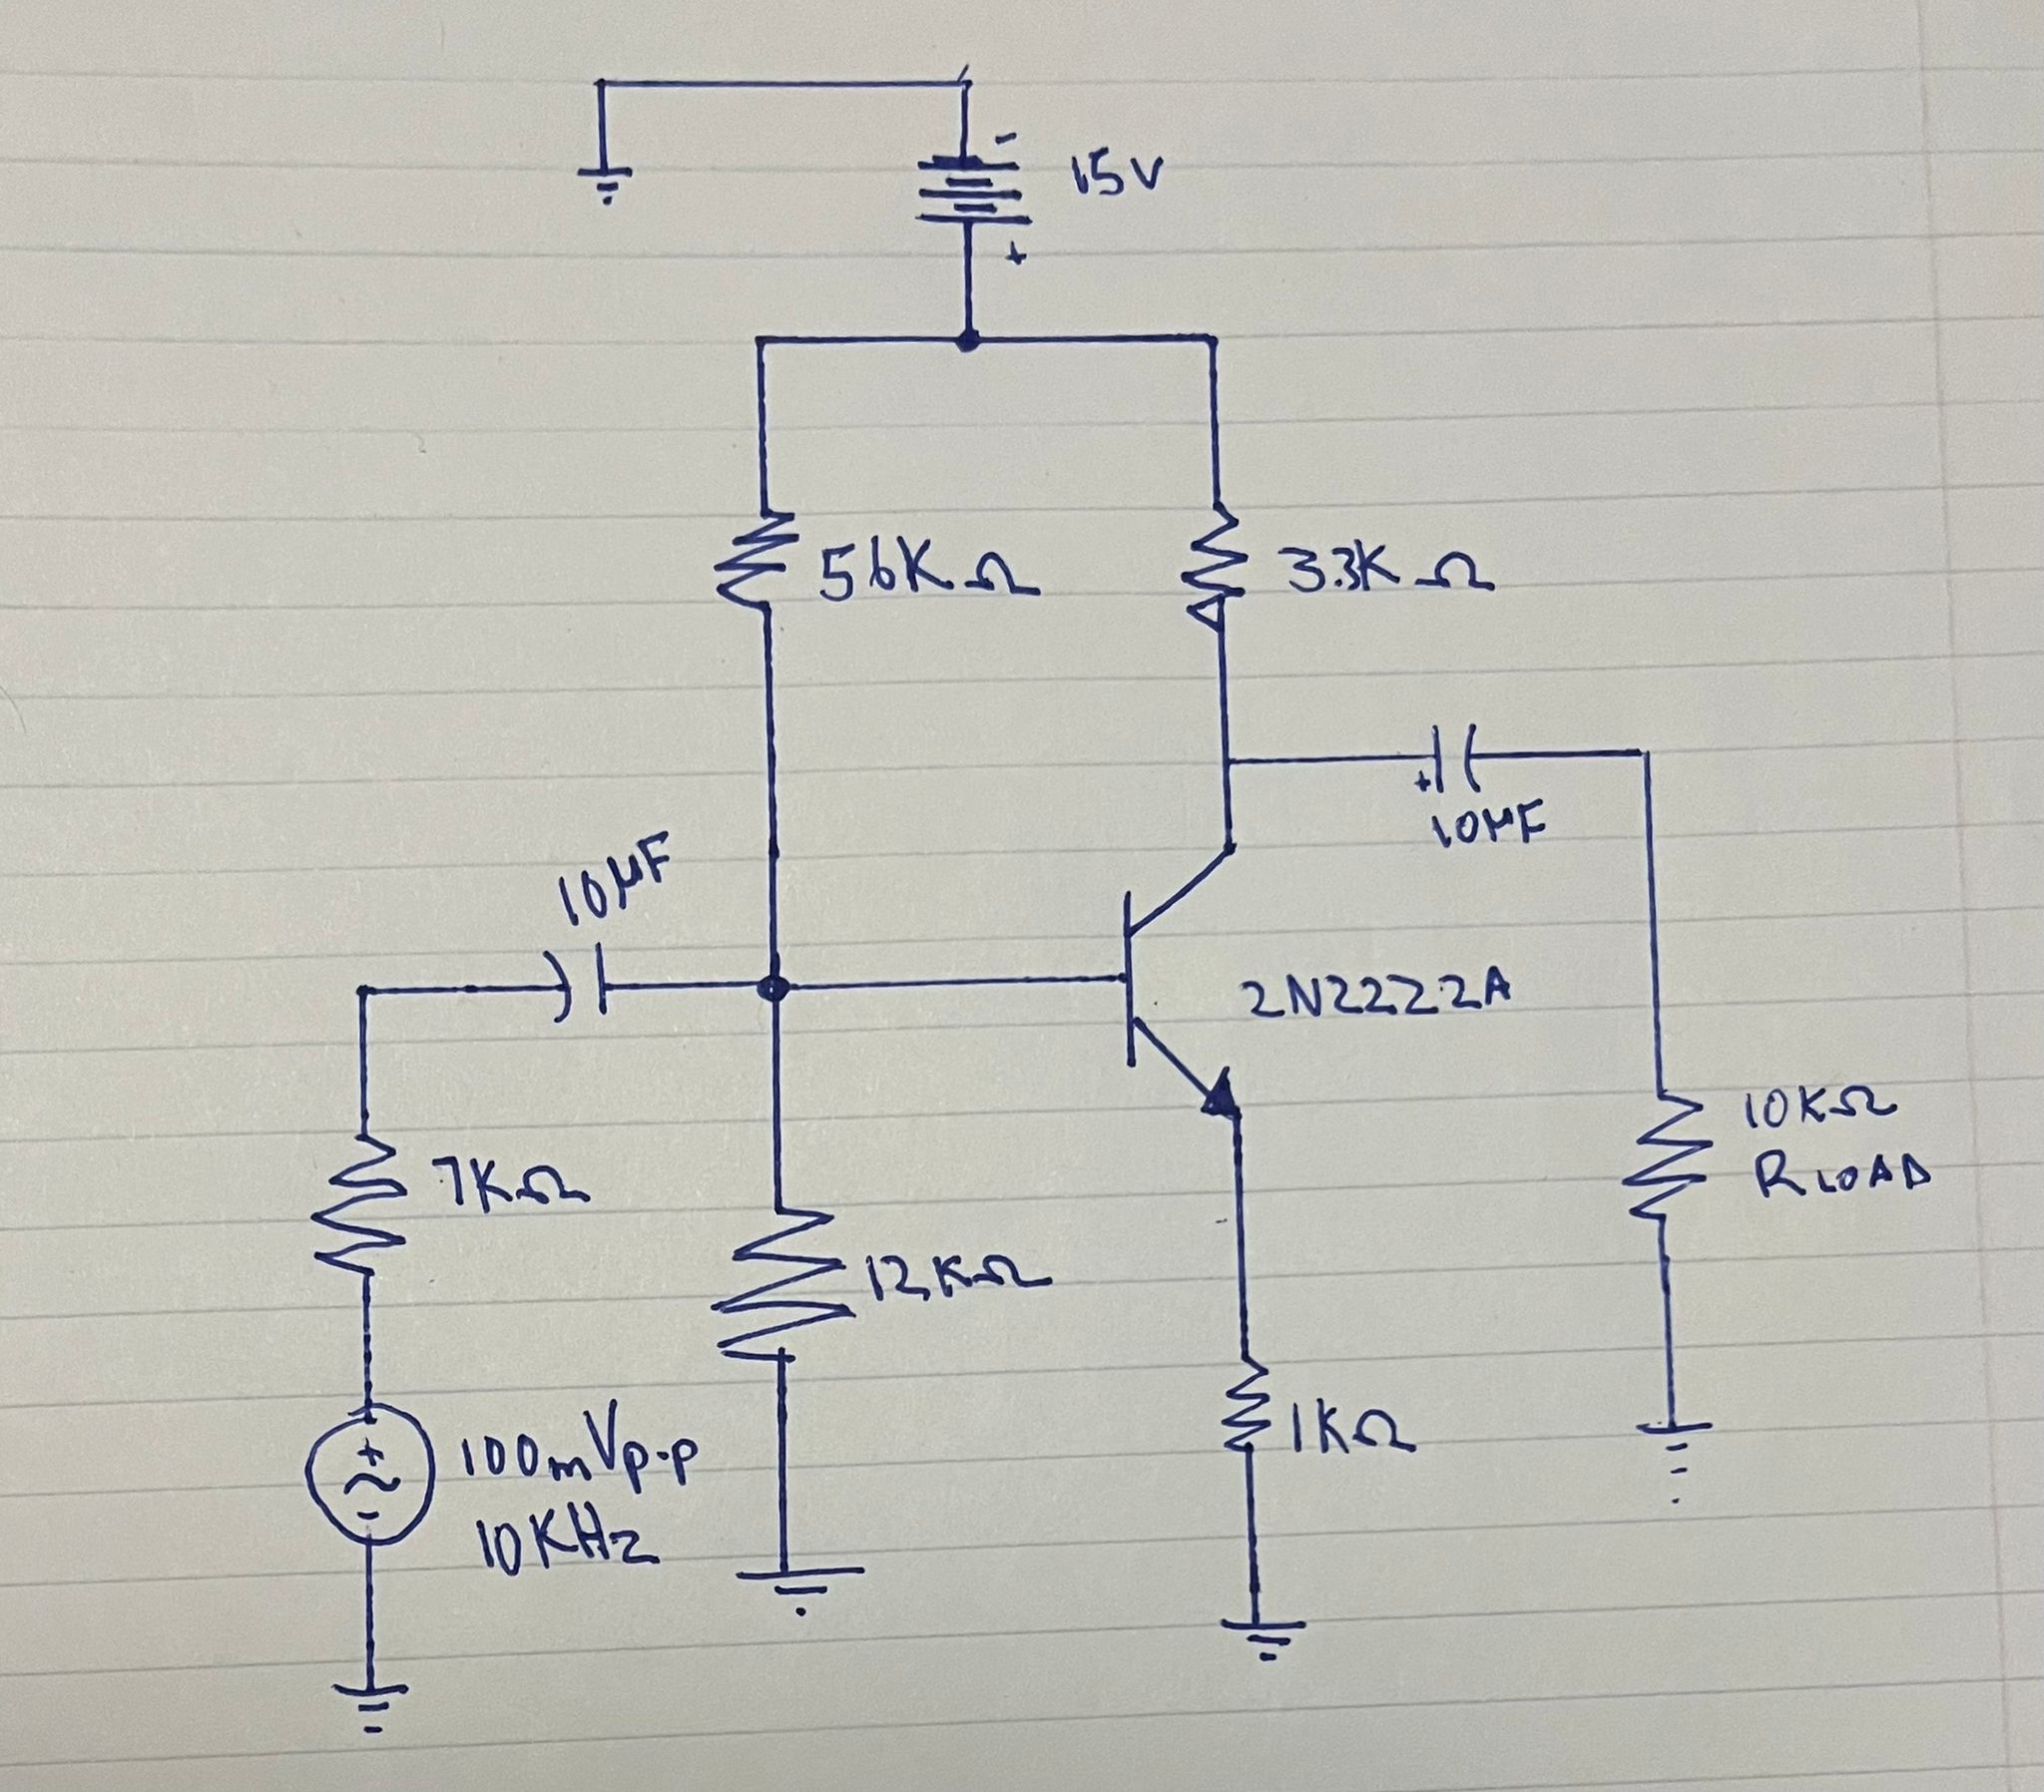 -
15V
+
56KΩ
3.3KΩ
+
10µF
10µF
2N2222A
7KΩ
10KΩ
RLOAD
12KΩ
+
~
-
100mVp-p
10KHz
1KΩ